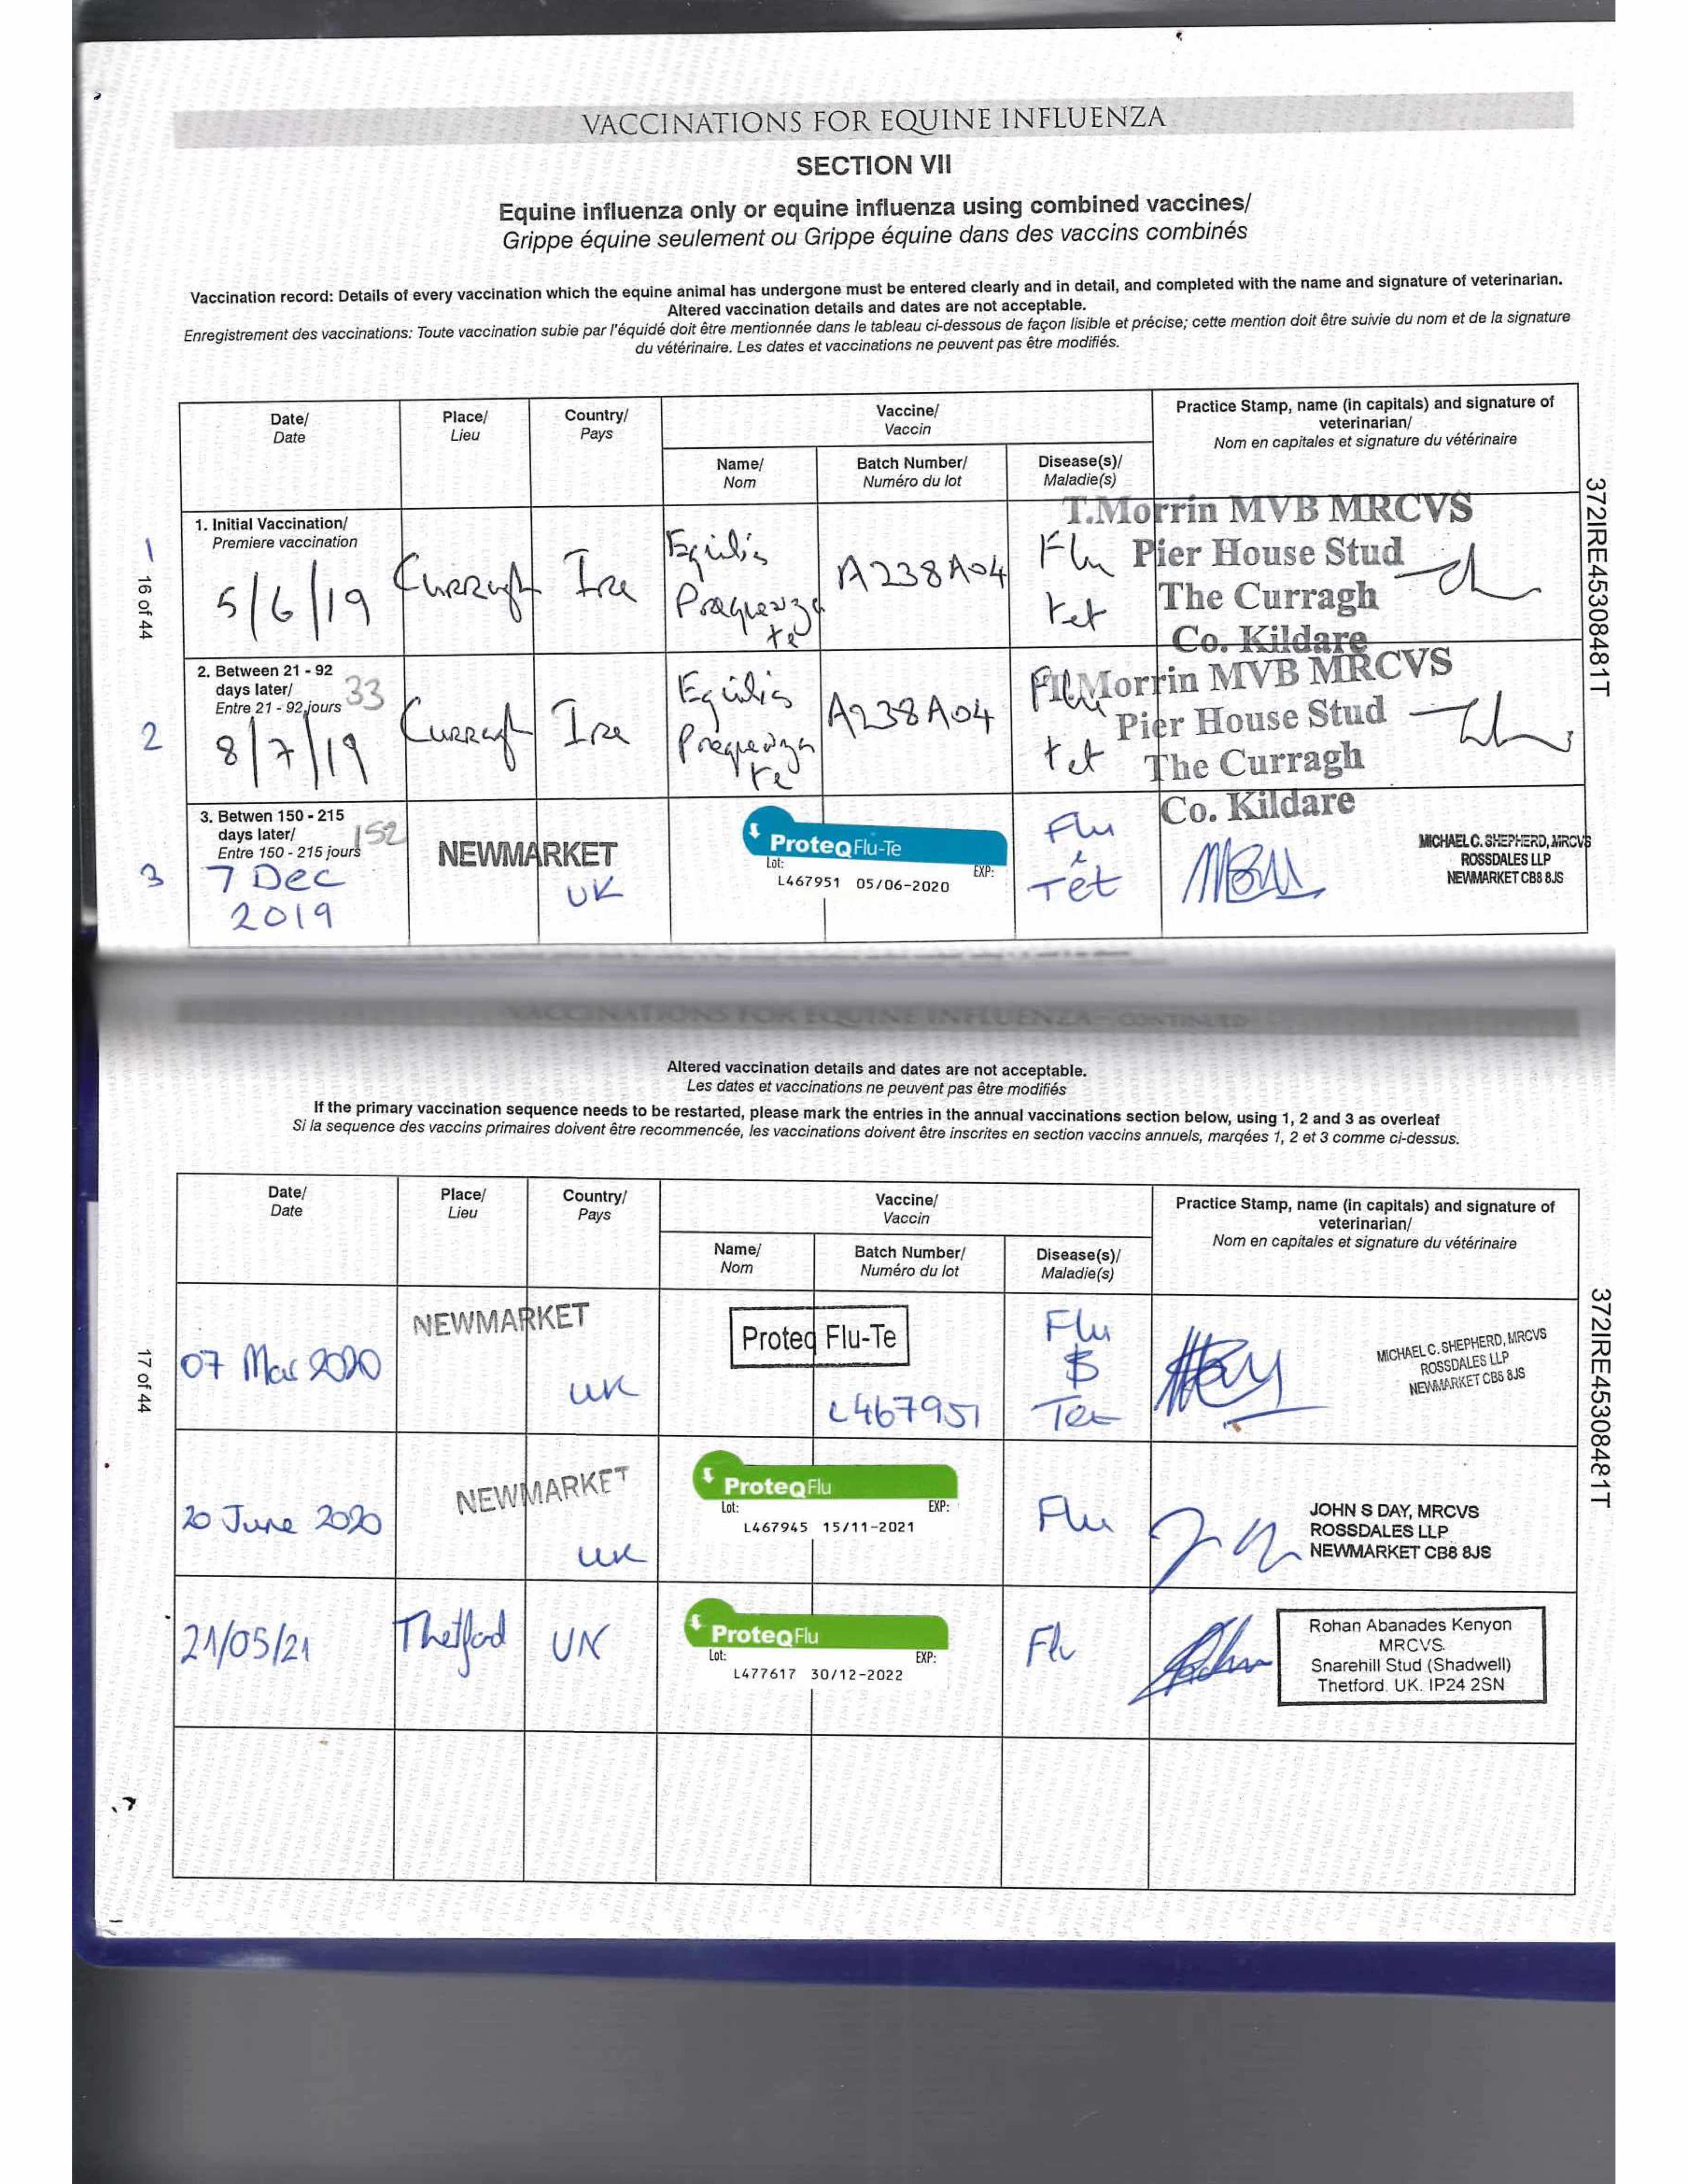 VACCINATIONS FOR EQUINE INFLUENZA
SECTION VII
Equine influenza only or equine influenza using combined vaccines/
Grippe équine seulement ou Grippe équine dans des vaccins combinés
Vaccination record: Details of every vaccination which the equine animal has undergone must be entered clearly and in detail, and completed with the name and signature of veterinarian.
Altered vaccination details and dates are not acceptable.
Enregistrement des vaccinations: Toute vaccination subie par l'équidé doit être mentionnée dans le tableau ci-dessous de façon lisible et précise; cette mention doit être suivie du nom et de la signature
du vétérinaire. Les dates et vaccinations ne peuvent pas être modifiés.
Date/
Date
Place/
Lieu
Country/
Pays
Vaccine/
Vaccin
Practice Stamp, name (in capitals) and signature of
veterinarian/
Nom en capitales et signature du vétérinaire
Name/
Nom
Batch Number/
Numéro du lot
Disease(s)/
Maladie(s)
1
16 of 44
1. Initial Vaccination/
Premiere vaccination
5/6/19
Curragh
Ire
Equilis
Prequenza
te
A238A04
Flu
tet
T.Morrin MVB MRCVS
Pier House Stud
The Curragh
Co. Kildare
372IRE45308481T
2
2. Between 21 - 92
days later/
Entre 21 - 92 jours
33
8/7/19
Curragh
Ire
Equilis
Prequenza
te
A238A04
Flu
tet
Morrin MVB MRCVS
Pier House Stud
The Curragh
Co. Kildare
3
3. Betwen 150 - 215
days later/
Entre 150 - 215 jours
152
7 Dec
2019
NEWMARKET
UK
ProteqFlu-Te
Lot:
EXP:
L467951 05/06-2020
Flu
Tet
MICHAEL C. SHEPHERD, MRCVS
ROSSDALES LLP
NEWMARKET CB8 8JS
VACCINATIONS FOR EQUINE INFLUENZA - CONTINUED
Altered vaccination details and dates are not acceptable.
Les dates et vaccinations ne peuvent pas être modifiés
If the primary vaccination sequence needs to be restarted, please mark the entries in the annual vaccinations section below, using 1, 2 and 3 as overleaf
Si la sequence des vaccins primaires doivent être recommencée, les vaccinations doivent être inscrites en section vaccins annuels, marqées 1, 2 et 3 comme ci-dessus.
Date/
Date
Place/
Lieu
Country/
Pays
Vaccine/
Vaccin
Practice Stamp, name (in capitals) and signature of
veterinarian/
Nom en capitales et signature du vétérinaire
Name/
Nom
Batch Number/
Numéro du lot
Disease(s)/
Maladie(s)
17 of 44
07 Mar 2020
NEWMARKET
UK
Proteq Flu-Te
L467951
Flu
&
Tet
MICHAEL C. SHEPHERD, MRCVS
ROSSDALES LLP
NEWMARKET CB8 8JS
372IRE45308481T
20 June 2020
NEWMARKET
UK
ProteqFlu
Lot:
EXP:
L467945 15/11-2021
Flu
JOHN S DAY, MRCVS
ROSSDALES LLP
NEWMARKET CB8 8JS
21/05/21
Thetford
UK
ProteqFlu
Lot:
EXP:
L477617 30/12-2022
Flu
Rohan Abanades Kenyon
MRCVS.
Snarehill Stud (Shadwell)
Thetford. UK. IP24 2SN